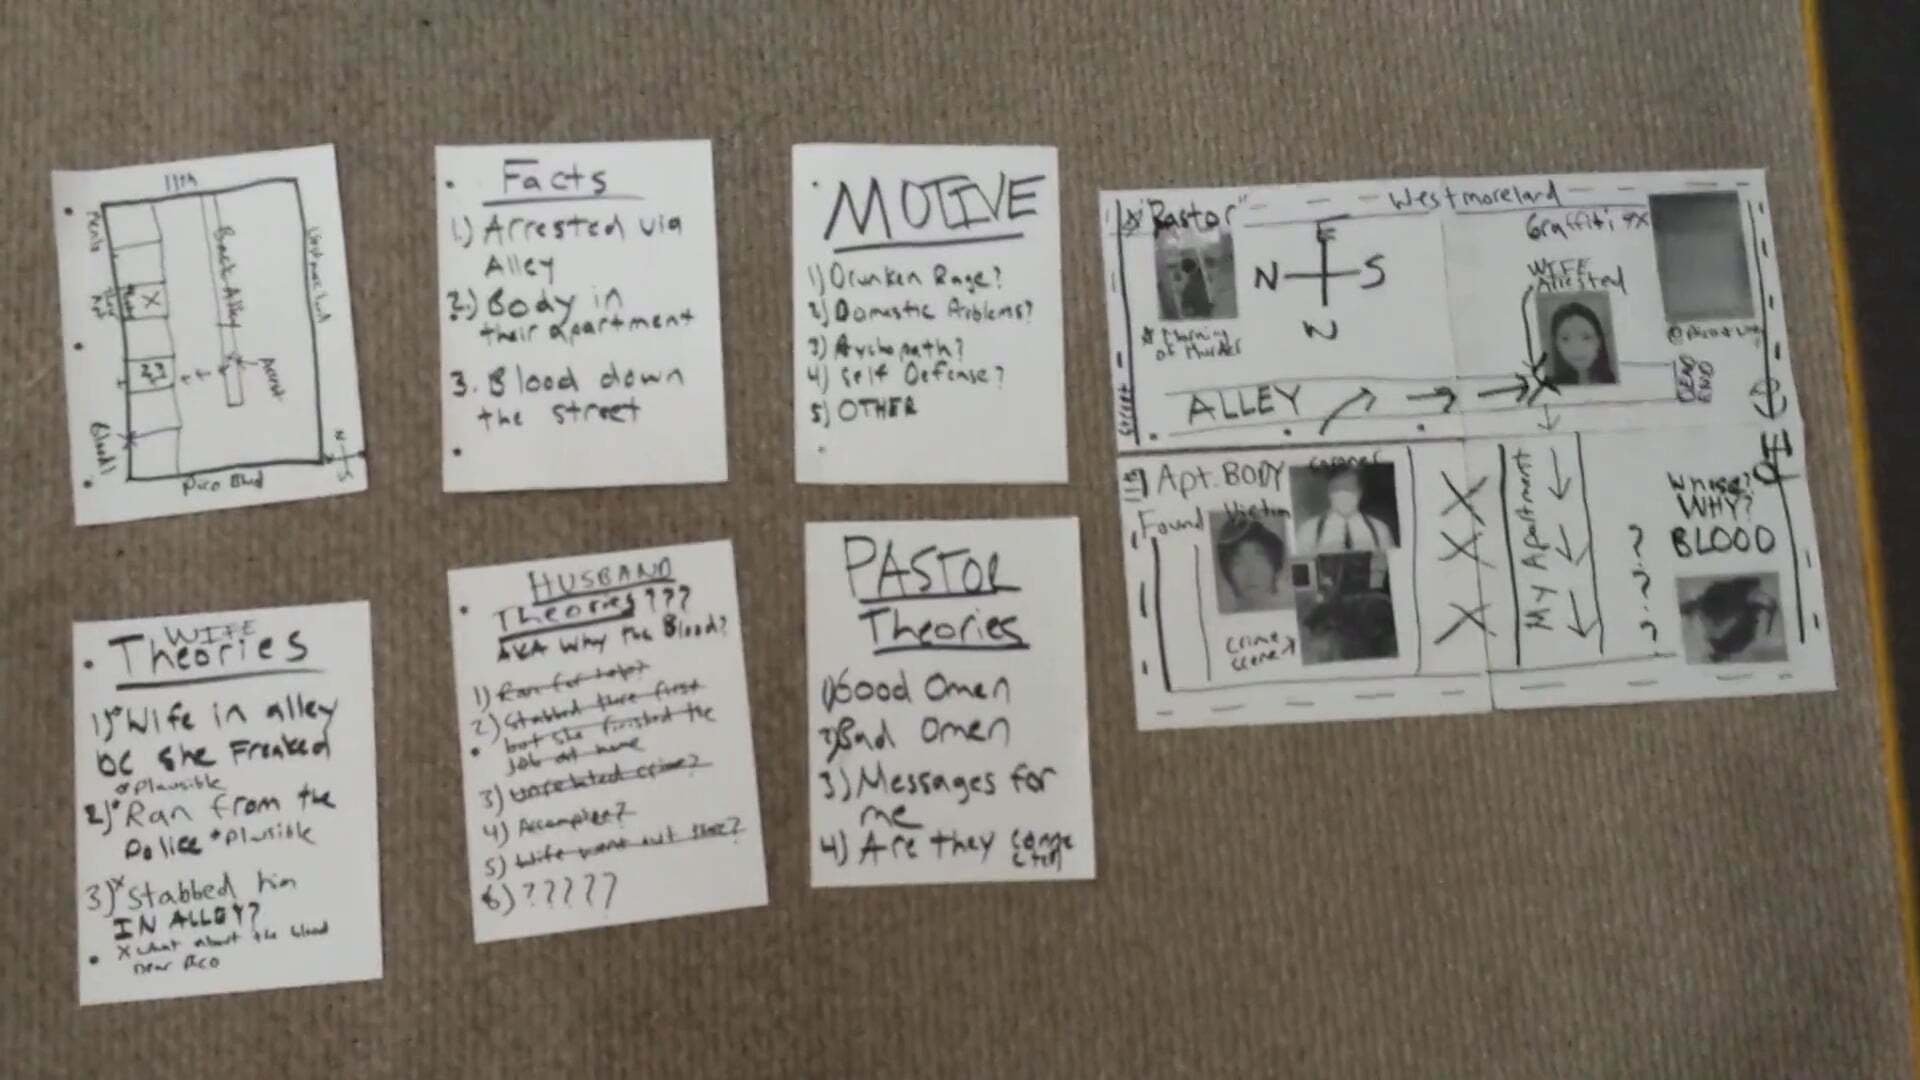 11th
Back Alley
X
Arrest
Pico Blvd
N
S
Facts
1.) Arrested via
Alley
2.) Body in
their apartment
3. Blood down
the street
MOTIVE
1) Drunken Rage?
2) Domestic Problems?
3) Psychopath?
4) Self Defense?
5) OTHER
WIFE
Theories
1) Wife in alley
bc she Freaked
Plausible
2) Ran from the
Police Plausible
3) Stabbed him
IN ALLEY?
X what about the blood
near Pico
HUSBAND
Theories???
AKA Why The Blood?
1) Ran for help?
2) Stabbed there first
but she finished the
job at home
3) unrelated crime?
4) Accomplice?
5) Wife went out there?
6) ?????
PASTOR
Theories
1) Good Omen
2) Bad Omen
3) Messages for
me
4) Are they
"Pastor"
Westmoreland
Graffiti
E
N S
W
WIFE
Arrested
Morning
of Murder
DEAD
END
Street
ALLEY
11th
Apt. BODY
Found
Victim
Coroner
Crime
scene
X
X
X
My Apartment
?
?
?
WHY?
BLOOD